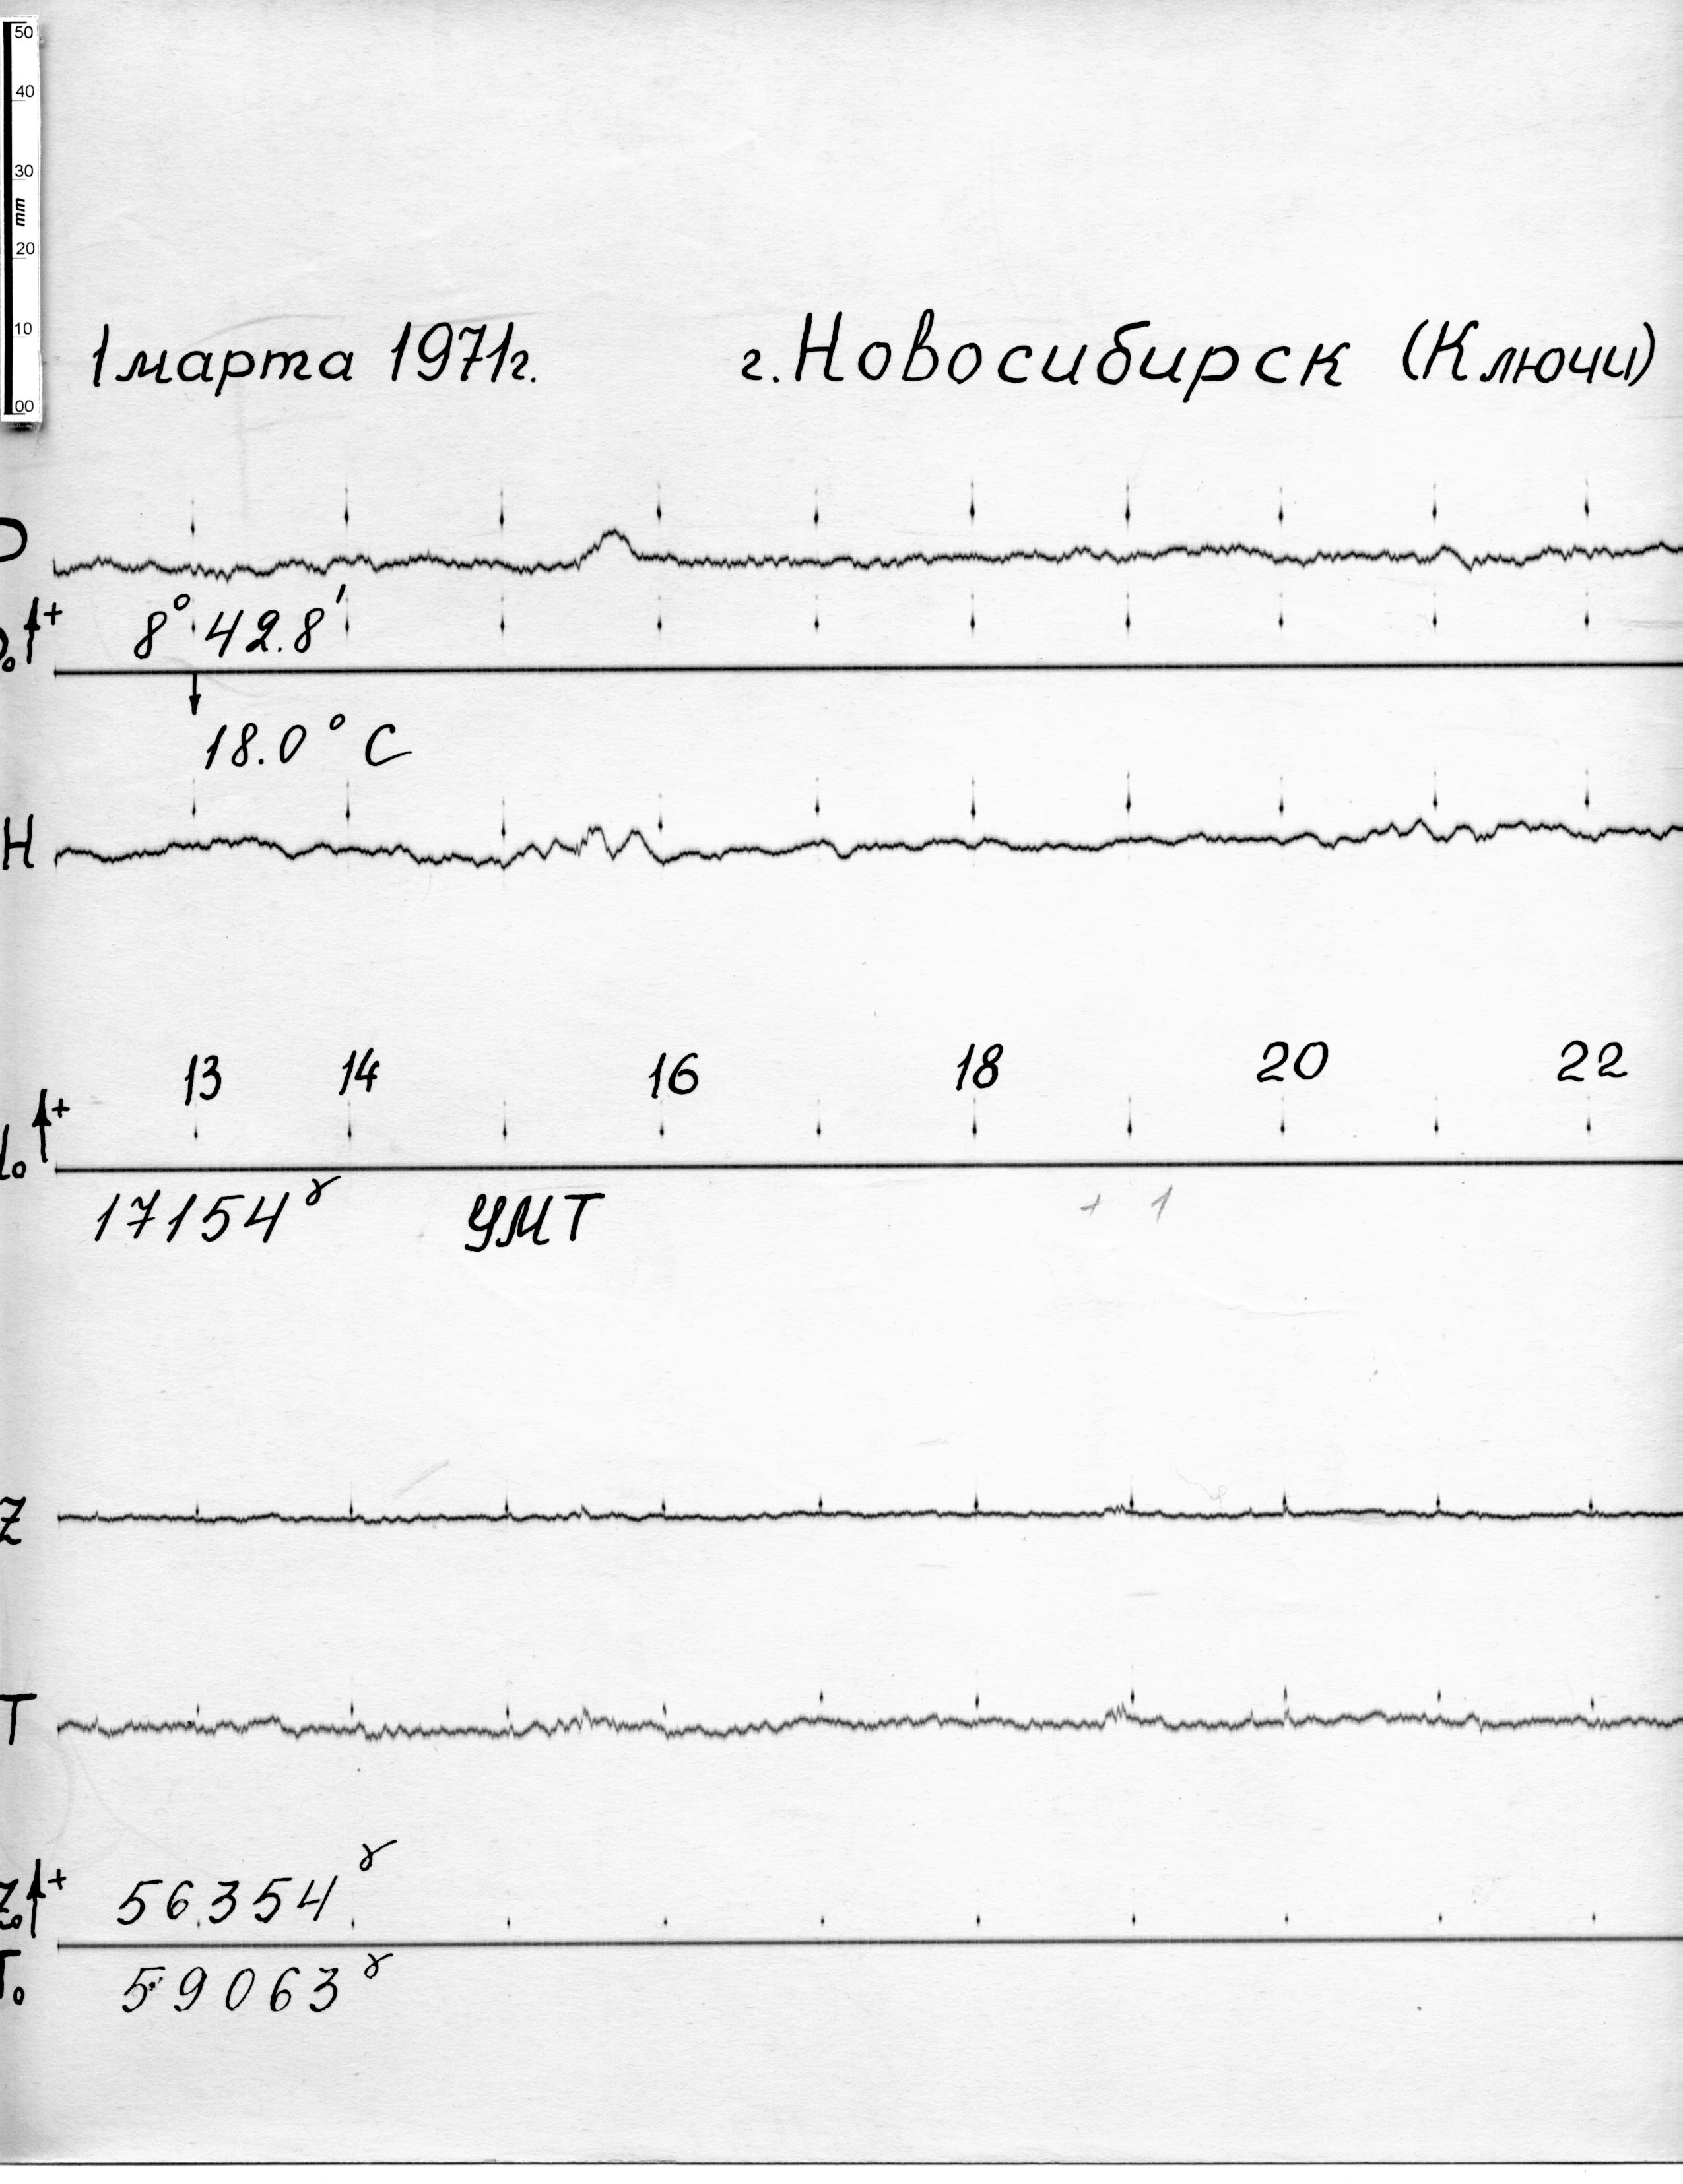 50
40
30
mm
20
10
00
1 марта 1971г. г. Новосибирск (Ключи)
D
+ 8° 42.8′
18.0° C
H
13 14 16 18 20 22
+
17154γ УМТ + 1
Z
T
Z₀ + 56354γ
T₀ 59063γ